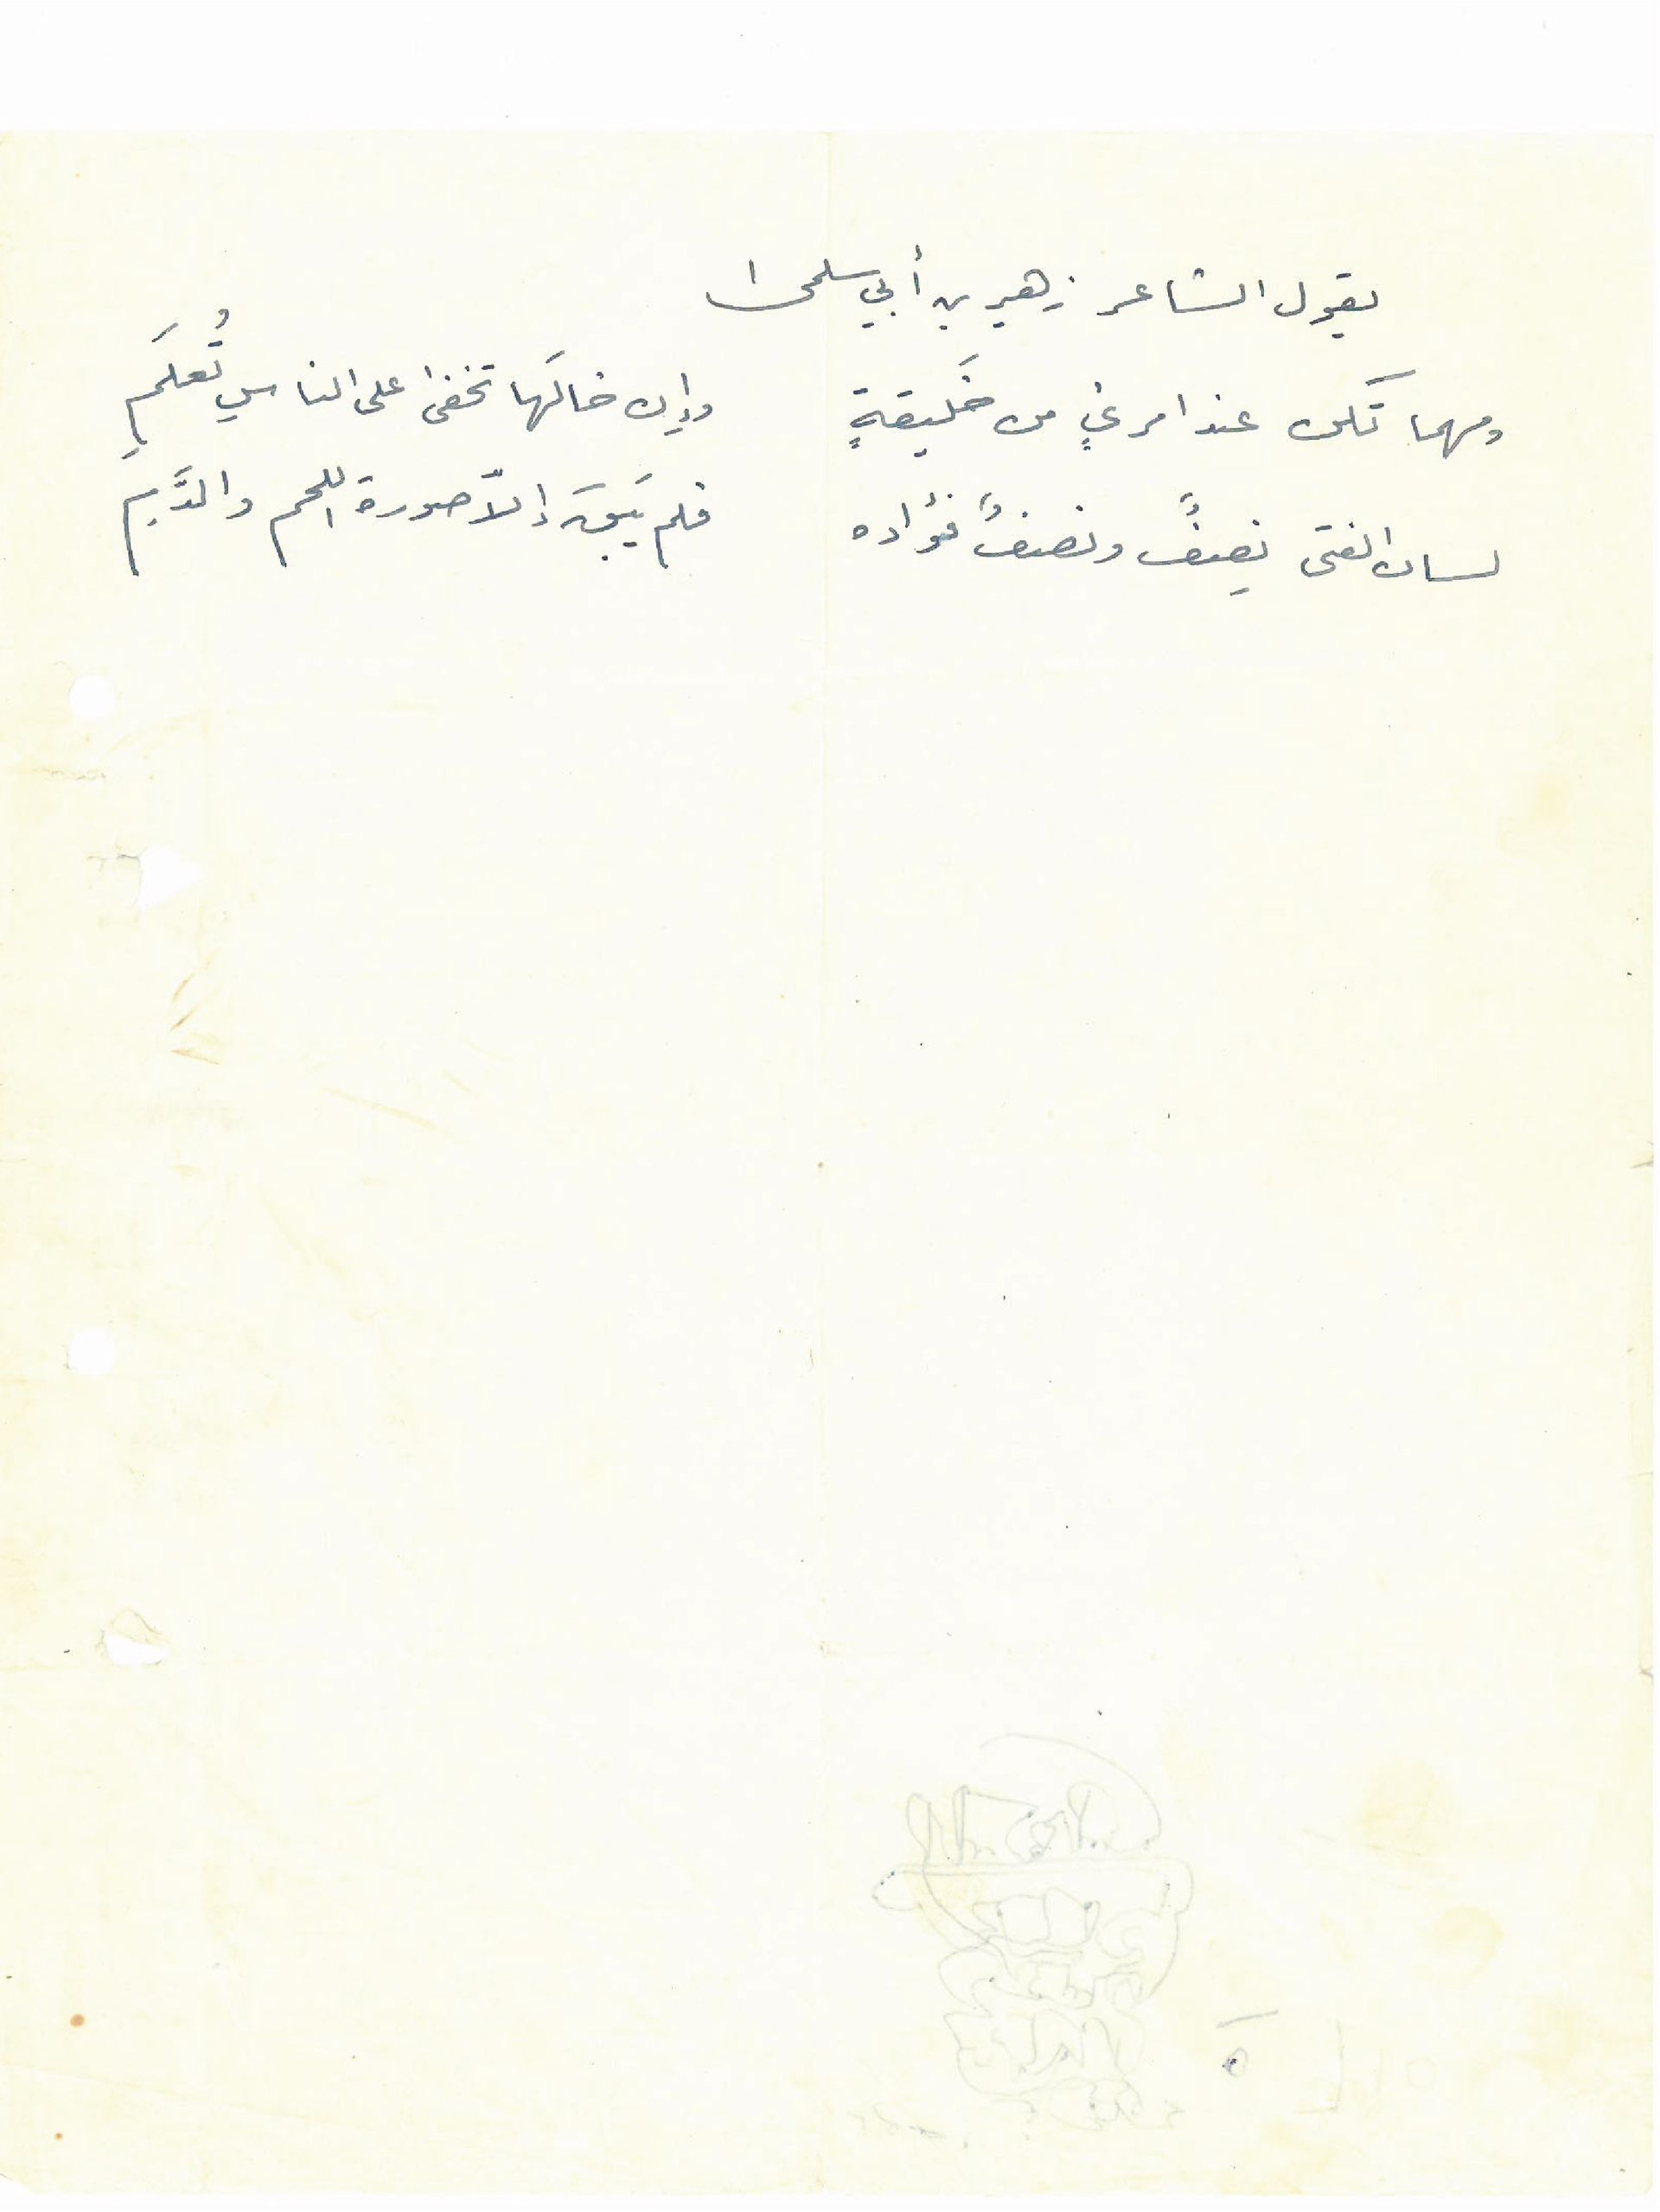 يقول الشاعر زهير بن أبي سلمى
ومهما تَكن عند امرئٍ من خَليقةٍ وإن خالَها تخفى على الناسِ تُعلَمِ
لسان الفتى نِصفٌ ونصفٌ فؤاده فلم يَبقَ إلّا صورة اللحم والدَّمِ